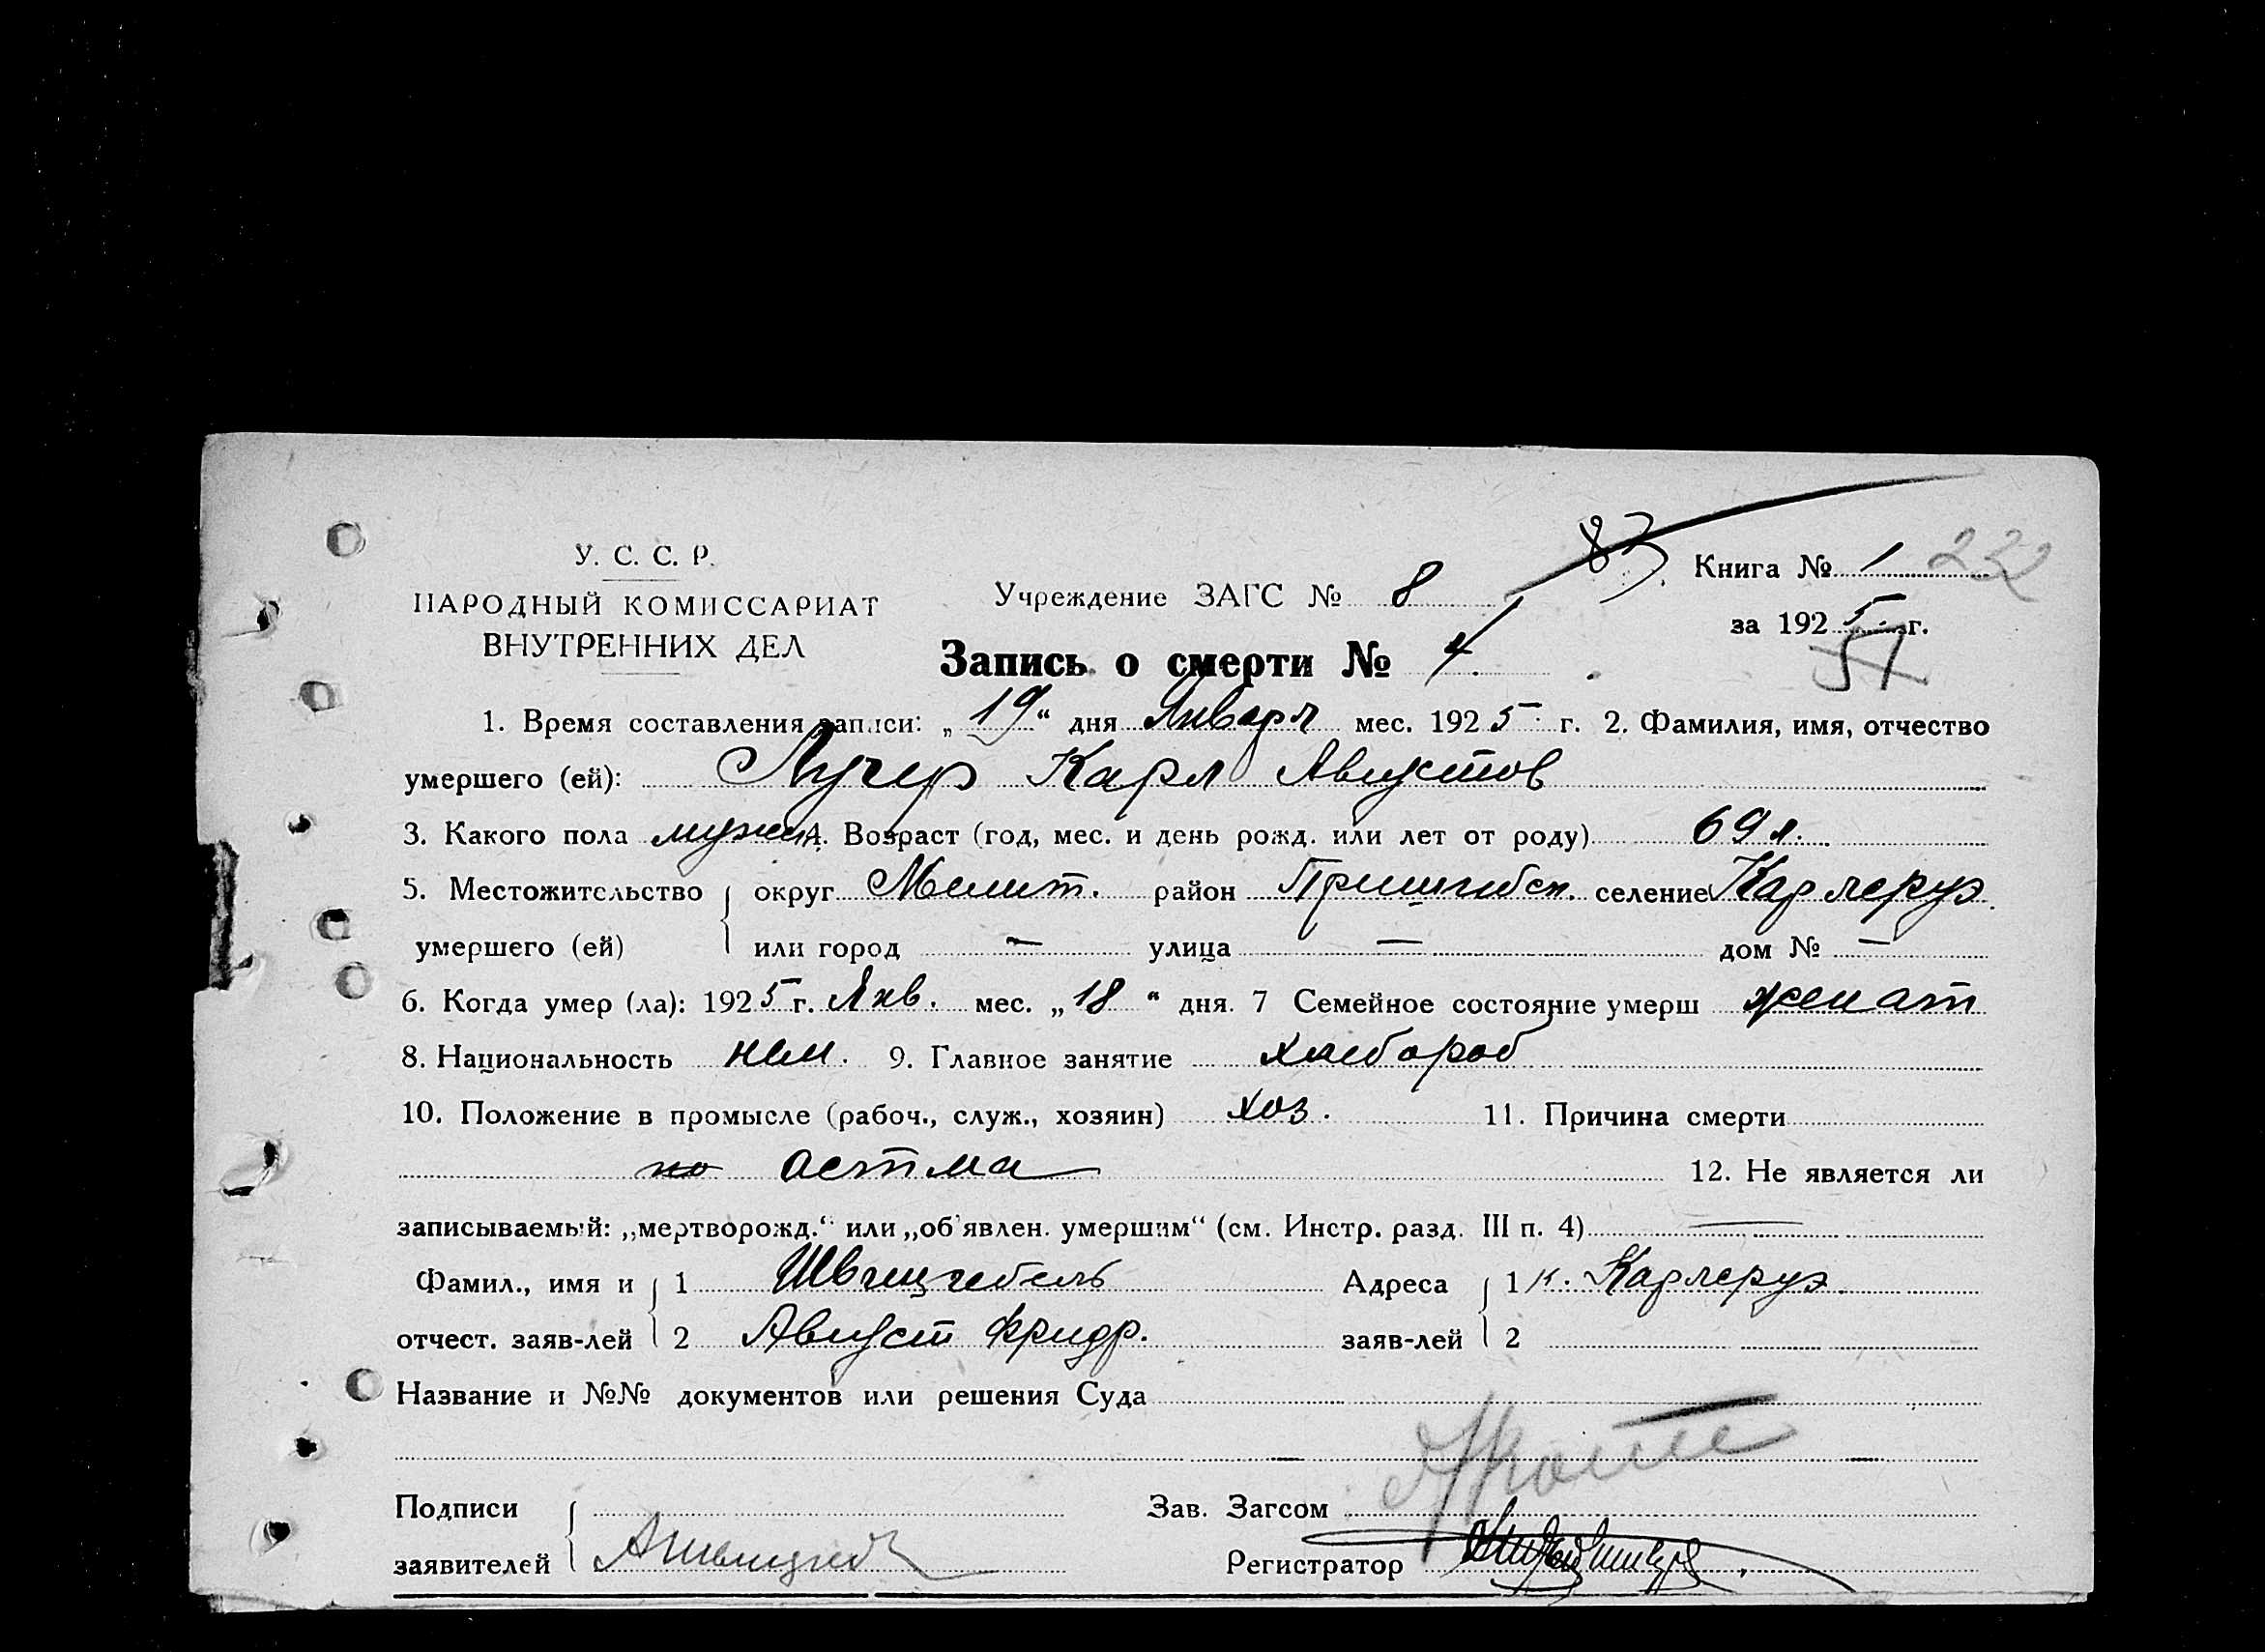 У. С. С. Р.
НАРОДНЫЙ КОМИССАРИАТ
ВНУТРЕННИХ ДЕЛ
Учреждение ЗАГС № 8
83
Книга № 1 232
за 1925 г.
57
Запись о смерти № 4
1. Время составления записи: „19“ дня Января мес. 1925 г. 2. Фамилия, имя, отчество
умершего (ей): Лугер Карл Августов
3. Какого пола мужск 4. Возраст (год, мес. и день рожд. или лет от роду) 69 л.
5. Местожительство округ Мелит. район Пришибск. селение Карлеруэ
умершего (ей) или город — улица — дом № —
6. Когда умер (ла): 1925 г. Янв. мес. „18“ дня. 7 Семейное состояние умерш женат
8. Национальность нем. 9. Главное занятие хлебороб
10. Положение в промысле (рабоч., служ., хозяин) хоз. 11. Причина смерти
по астма 12. Не является ли
записываемый: „мертворожд.“ или „об'явлен. умершим“ (см. Инстр. разд. III п. 4) —
Фамил., имя и 1 Швицгебель Адреса 1 к. Карлеруэ
отчест. заяв-лей 2 Август Фридр. заяв-лей 2
Название и №№ документов или решения Суда
Подписи Зав. Загсом
заявителей Регистратор